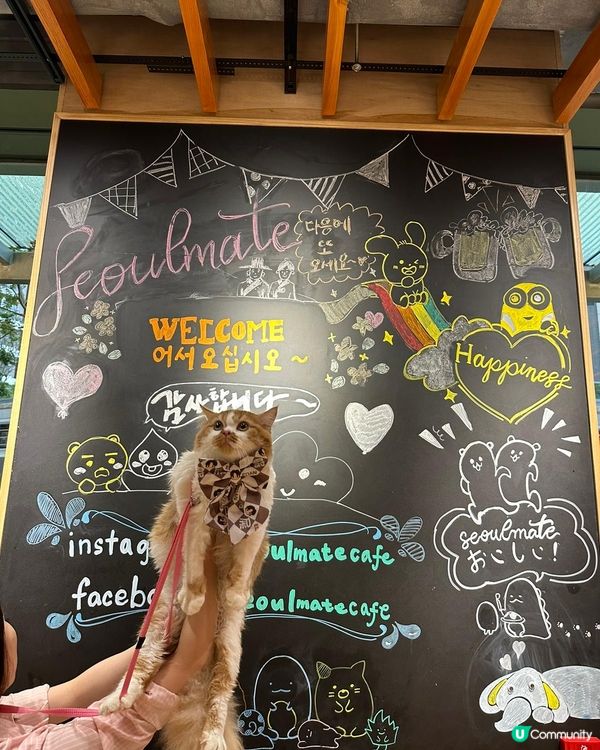 Seoulmate
다음에
또
오세요~
WELCOME
어서오십시오~
Happiness
감사합니다~
instag
oulmatecafe
facebo
eoulmatecafe
seoulmate
おいしい!
U Community